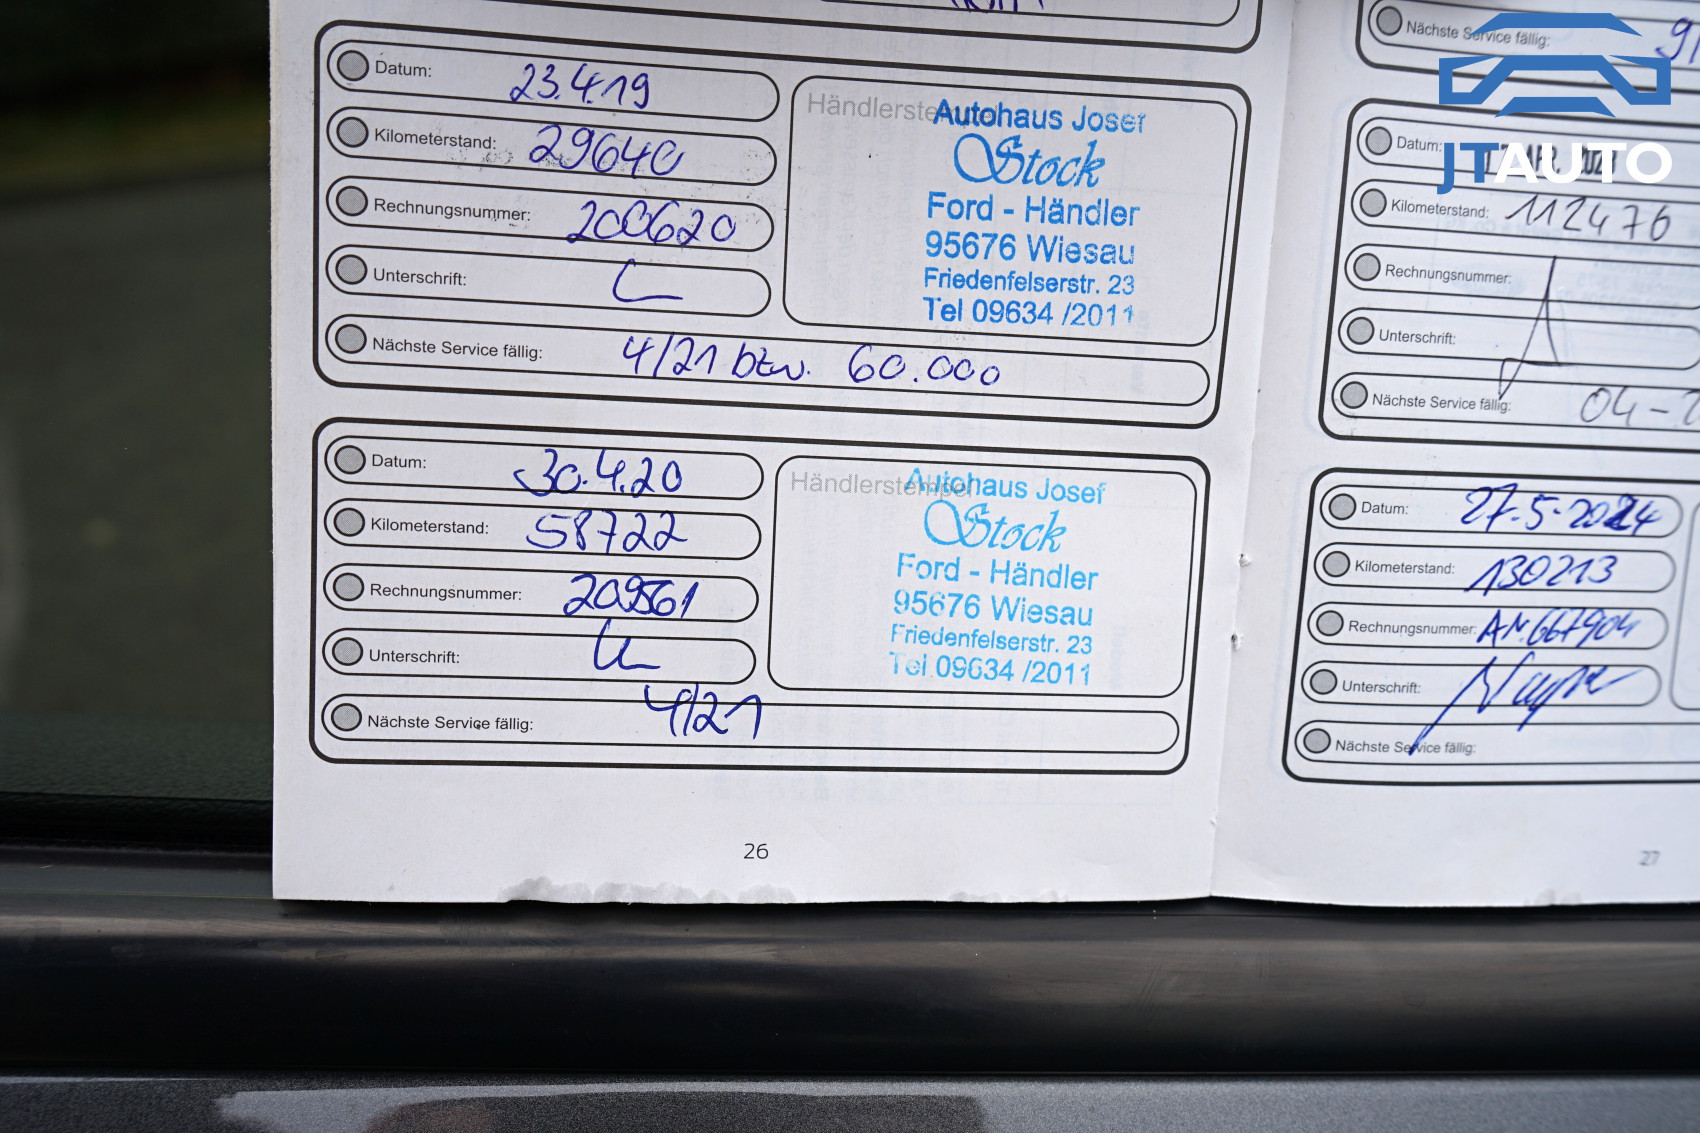 Datum: 23.4.19
Kilometerstand: 29640
Rechnungsnummer: 200620
Unterschrift:
Nächste Service fällig: 4/21 bzw. 60.000
Händlerstempel
Autohaus Josef
Stock
Ford - Händler
95676 Wiesau
Friedenfelserstr. 23
Tel 09634 /2011
Datum: 30.4.20
Kilometerstand: 58722
Rechnungsnummer:
Unterschrift:
Nächste Service fällig: 4/21
Händlerstempel
Autohaus Josef
Stock
Ford - Händler
95676 Wiesau
Friedenfelserstr. 23
Tel 09634 /2011
26
Nächste Service fällig:
JTAUTO
Datum:
Kilometerstand: 112476
Rechnungsnummer:
Unterschrift:
Nächste Service fällig: 04-2
Datum: 27.5.2024
Kilometerstand: 130213
Rechnungsnummer: AN.667904
Unterschrift:
Nächste Service fällig:
27